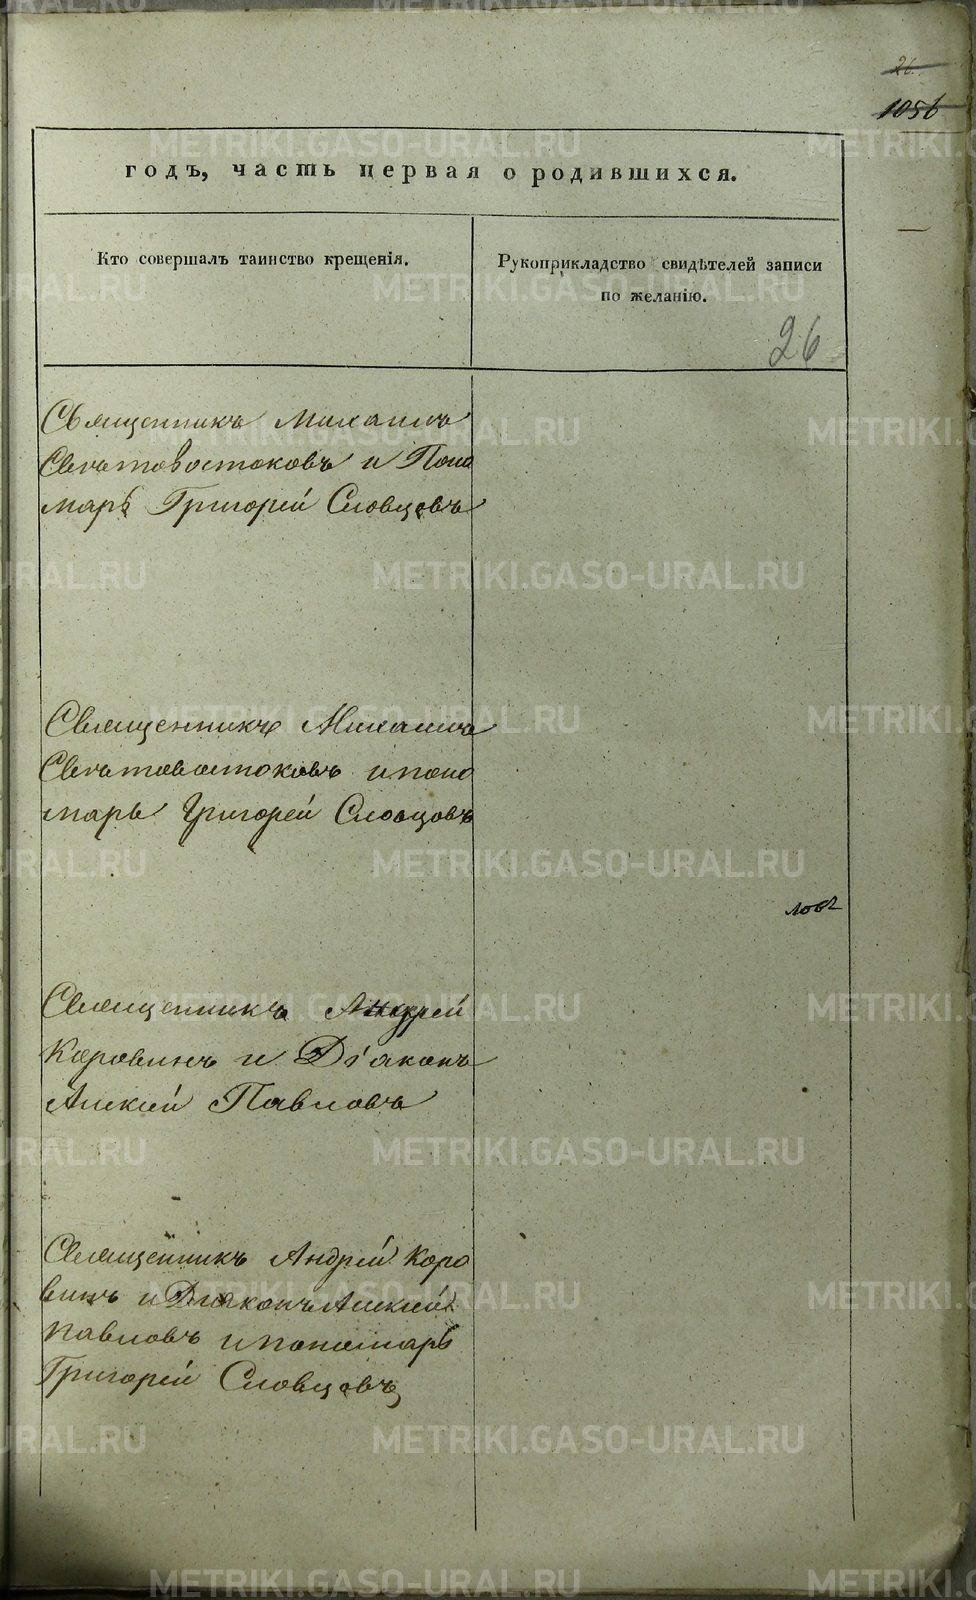 26.
1056
годъ, часть первая о родившихся.
Кто совершалъ таинство крещенія.
Рукоприкладство свидѣтелей записи
по желанію.
26
Священникъ Михаилъ
Свѧтовостоковъ и Поно
марь Григорей Словцовъ
Священникъ Михаилъ
Свѧтовостоковъ и поно
марь Григорей Словцовъ
Священникъ Андрей
Коровинъ и Діаконъ
Алексій Павловъ
Священникъ Андрей Коро
винъ и Діаконъ Алексій
Павловъ и пономарь
Григорей Словцовъ
METRIKI.GASO-URAL.RU